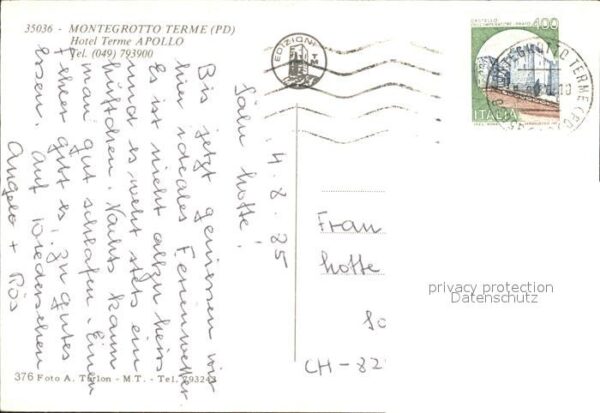 35036 - MONTEGROTTO TERME (PD)
Hotel Terme APOLLO
Tel. (049) 793900
EDIZIONI
400
ITALIA
MONTEGROTTO TERME (PD)
4.8.85
Salü Lotte!
Bis jetzt geniessen wir
hier ideales Ferienwetter
Es ist nicht allzu heiss
und es weht stets ein
Lüftchen. Nachts kann
man gut schlafen. Einen
Fehler gibt es: zu gutes
Essen. Auf Wiedersehen
Angelo + Rös
Frau
Lotte
CH-82
privacy protection
Datenschutz
376 Foto A. Turlon - M.T. - Tel. 793243